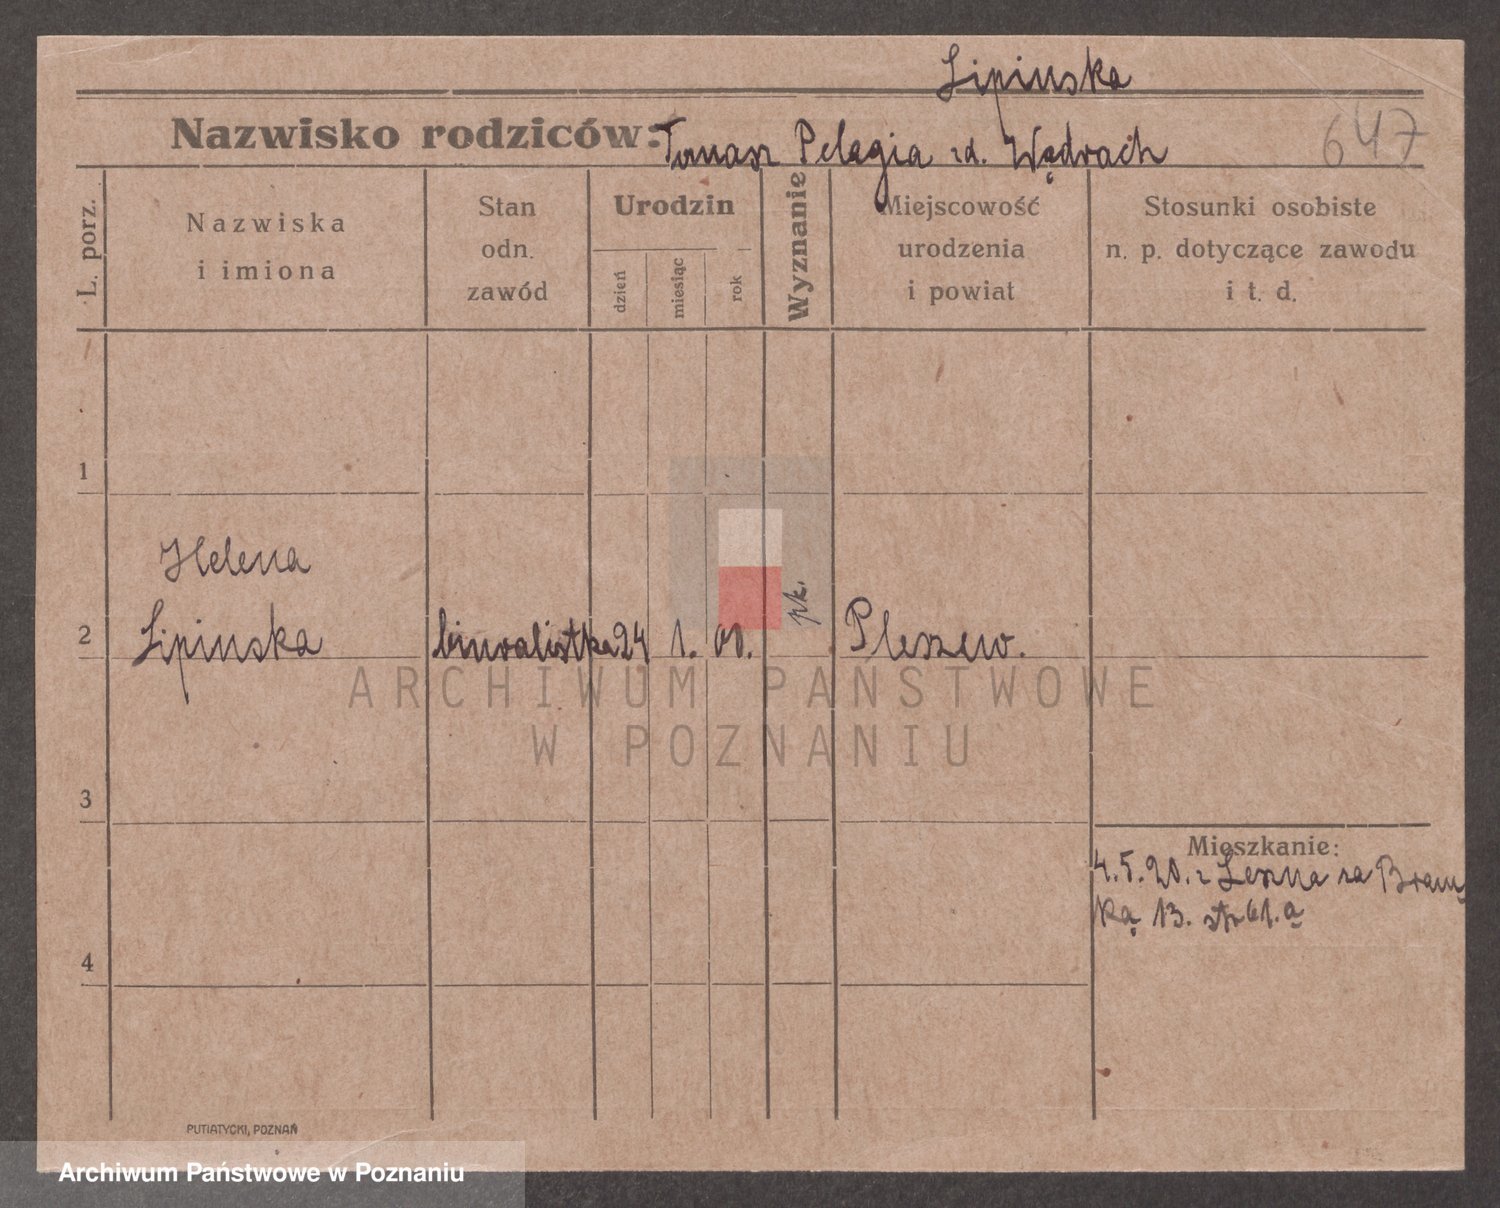 Lipinska
Nazwisko rodziców: Tomasz Pelagia zd. Wędrach
647
L. porz.
Nazwiska
i imiona
Stan
odn.
zawód
Urodzin
dzień
miesiąc
rok
Wyznanie
Miejscowość
urodzenia
i powiat
Stosunki osobiste
n. p. dotyczące zawodu
i t. d.
1
Helena
2 Lipinska biuralistka 24 1. 00. pk. Pleszew.
ARCHIWUM PAŃSTWOWE
W POZNANIU
3
Mieszkanie:
4.5.20. z Leszna na Bram
ką 13. str 61.a
4
PUTIATYCKI, POZNAŃ
Archiwum Państwowe w Poznaniu